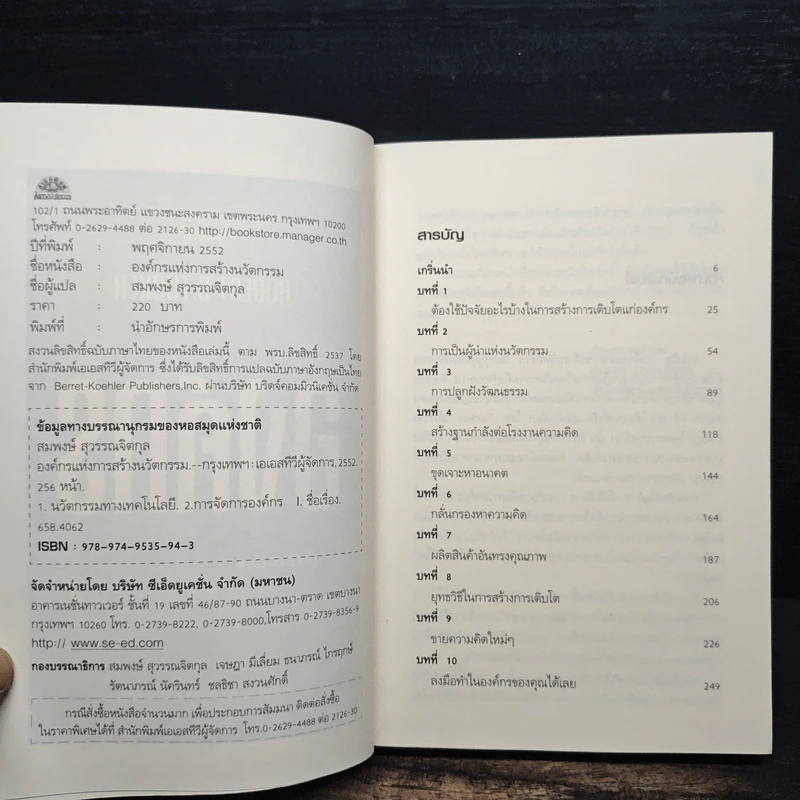 102/1 ถนนพระอาทิตย์ แขวงชนะสงคราม เขตพระนคร กรุงเทพฯ 10200
โทรศัพท์ 0-2629-4488 ต่อ 2126-30 http://bookstore.manager.co.th
ปีที่พิมพ์ : พฤศจิกายน 2552
ชื่อหนังสือ : องค์กรแห่งการสร้างนวัตกรรม
ชื่อผู้แปล : สมพงษ์ สุวรรณจิตกุล
ราคา : 220 บาท
พิมพ์ที่ : นำอักษรการพิมพ์
สงวนลิขสิทธิ์ฉบับภาษาไทยของหนังสือเล่มนี้ ตาม พรบ.ลิขสิทธิ์ 2537 โดย
สำนักพิมพ์เอเอสทีวีผู้จัดการ ซึ่งได้รับลิขสิทธิ์การแปลฉบับภาษาอังกฤษเป็นไทย
จาก Berret-Koehler Publishers,Inc. ผ่านบริษัท บริดจ์คอมมิวนิเคชั่น จำกัด
ข้อมูลทางบรรณานุกรมของหอสมุดแห่งชาติ
สมพงษ์ สุวรรณจิตกุล
องค์กรแห่งการสร้างนวัตกรรม.--กรุงเทพฯ:เอเอสทีวีผู้จัดการ,2552.
256 หน้า.
1. นวัตกรรมทางเทคโนโลยี. 2.การจัดการองค์กร I. ชื่อเรื่อง.
658.4062
ISBN : 978-974-9535-94-3
จัดจำหน่ายโดย บริษัท ซีเอ็ดยูเคชั่น จำกัด (มหาชน)
อาคารเนชั่นทาวเวอร์ ชั้นที่ 19 เลขที่ 46/87-90 ถนนบางนา-ตราด เขตบางนา
กรุงเทพฯ 10260 โทร. 0-2739-8222, 0-2739-8000,โทรสาร 0-2739-8356-9
http:// www.se-ed.com
กองบรรณาธิการ สมพงษ์ สุวรรณจิตกุล เจษฎา มีเลี่ยม ธนาภรณ์ ไกรฤกษ์
รัตนาภรณ์ นัครินทร์ ชลธิชา สงวนศักดิ์
กรณีสั่งซื้อหนังสือจำนวนมาก เพื่อประกอบการสัมมนา ติดต่อสั่งซื้อ
ในราคาพิเศษได้ที่ สำนักพิมพ์เอเอสทีวีผู้จัดการ โทร.0-2629-4488 ต่อ 2126-30
สารบัญ
เกริ่นนำ 6
บทที่ 1
ต้องใช้ปัจจัยอะไรบ้างในการสร้างการเติบโตแก่องค์กร 25
บทที่ 2
การเป็นผู้นำแห่งนวัตกรรม 54
บทที่ 3
การปลูกฝังวัฒนธรรม 89
บทที่ 4
สร้างฐานกำลังต่อโรงงานความคิด 118
บทที่ 5
ขุดเจาะหาอนาคต 144
บทที่ 6
กลั่นกรองหาความคิด 164
บทที่ 7
ผลิตสินค้าอันทรงคุณภาพ 187
บทที่ 8
ยุทธวิธีในการสร้างการเติบโต 206
บทที่ 9
ขายความคิดใหม่ๆ 226
บทที่ 10
ลงมือทำในองค์กรของคุณได้เลย 249